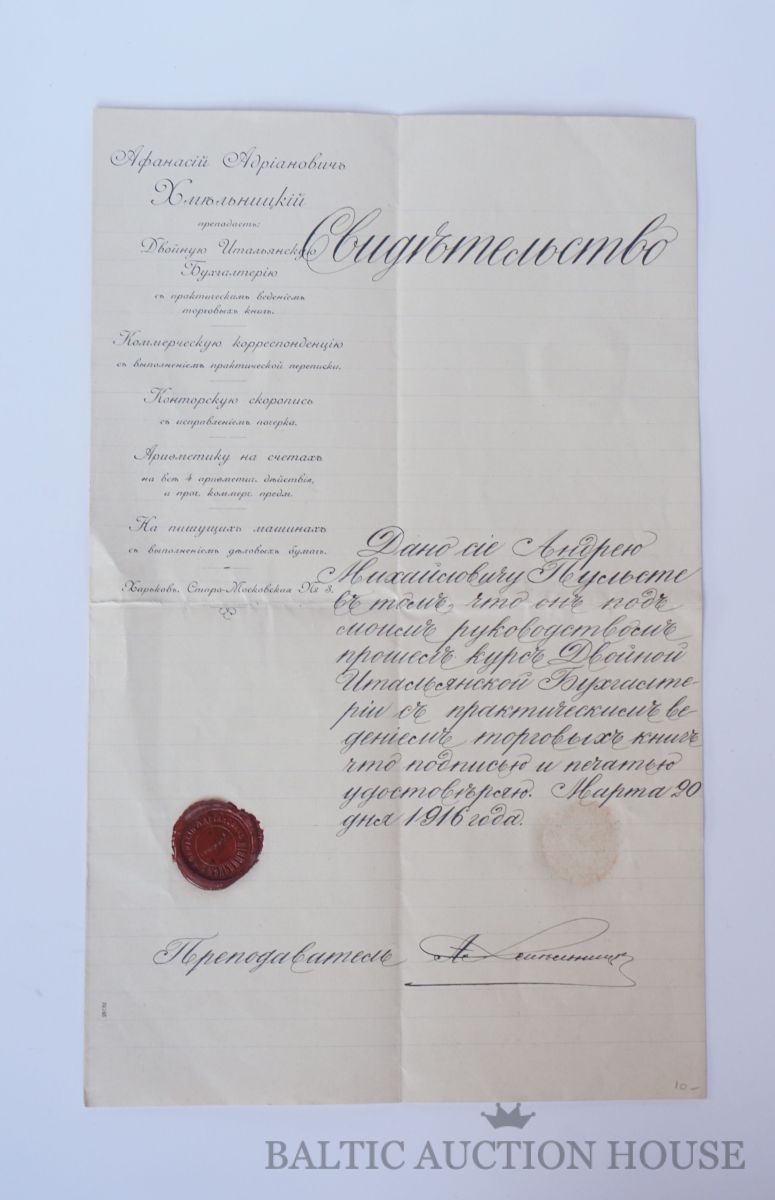 Афанасій Адріановичъ
Хмѣльницкій
преподаетъ:
Двойную Итальянскую
Бухгалтерію
съ практическимъ веденіемъ
торговыхъ книгъ.
Коммерческую корреспонденцію
съ выполненіемъ практической переписки.
Конторскую скоропись
съ исправленіемъ почерка.
Ариѳметику на счетахъ
на всѣ 4 ариѳметич. дѣйствія,
и проч. коммерч. предм.
На пишущихъ машинахъ
съ выполненіемъ дѣловыхъ бумагъ.
Харьковъ, Старо-Московская № 3.
Свидѣтельство
Дано сіе Андрею
Михайловичу Пульсте
въ томъ, что онъ подъ
моимъ руководствомъ
прошелъ курсъ Двойной
Итальянской Бухгалте
ріи съ практическимъ ве
деніемъ торговыхъ книгъ
что подписью и печатью
удостовѣряю. Марта 20
дня 1916 года.
Преподаватель А. Хмѣльницкій
10-
BALTIC AUCTION HOUSE